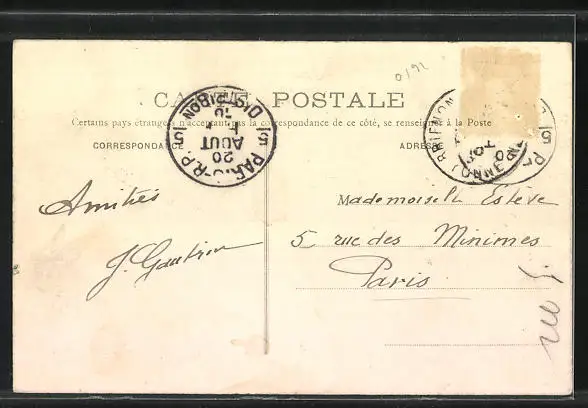 0192
CARTE POSTALE
Certains pays étrangers n'acceptant pas la correspondance de ce côté, se renseigner à la Poste
CORRESPONDANCE
ADRESSE
DISTRIBUTION
5 5
1
20
AOUT
PARIS R.P
Amitiés
J. Gautier
Mademoiselle Estève
5 rue des Minimes
Paris